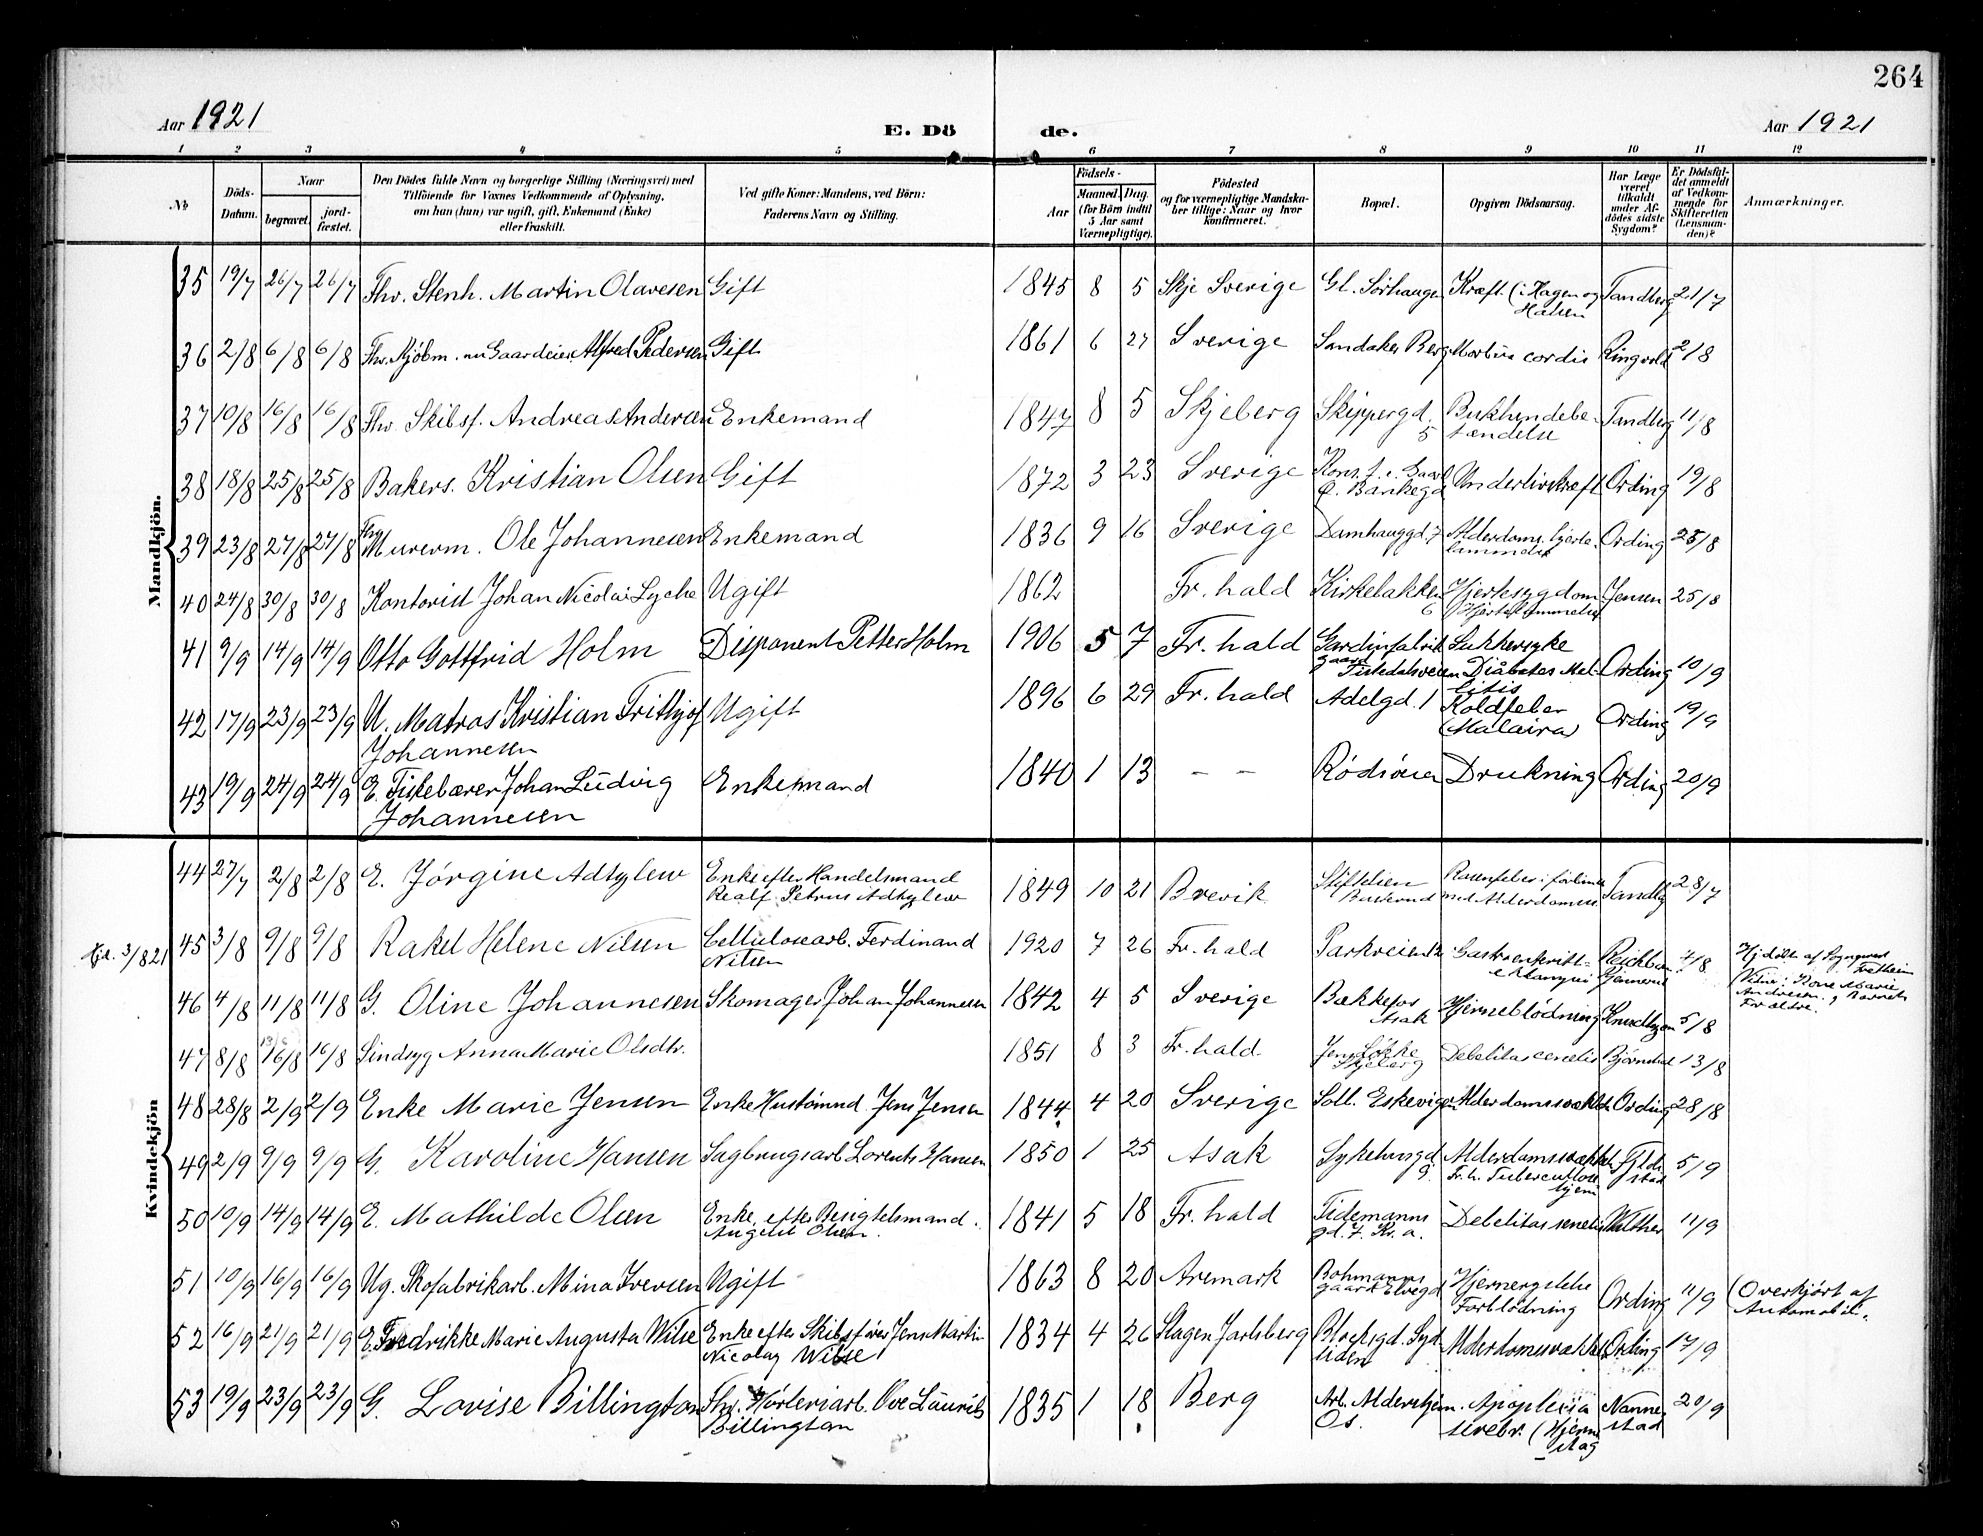 264
Aar 1921
E. Dö de.
Aar 1921
1 2 3 4 5 6 7 8 9 10 11 12
№
Döds-Datum.
Naar
begravet.
jord-fæstet.
Den Dödes fulde Navn og borgerlige Stilling (Næringsvei) med
Tilföiende for Voxnes Vedkommende af Oplysning,
om han (hun) var ugift, gift, Enkemand (Enke)
eller fraskilt.
Ved gifte Koner: Mandens, ved Börn:
Faderens Navn og Stilling.
Födsels-
Aar
Maaned. Dag.
(for Börn indtil
5 Aar samt
Værnepligtige).
Födested
og for værnepligtige Mandska-
ber tillige: Naar og hvor
konfirmeret.
Bopæl.
Opgiven Dödsaarsag.
Har Læge
været
tilkaldt
under Af-
dödes sidste
Sygdom?
Er Dödsfal-
det anmeldt
af Vedkom-
mende for
Skifteretten
(Lensman-
den)?
Anmærkninger.
Mandkjön.
35 19/7 26/7 26/7 Fhv. Stenh. Martin Olavesen Gift 1845 8 5 Skje Sverige Gl. Sörhaugen Kræft (i Hagen og Halsen Tandberg 21/7
36 2/8 6/8 6/8 Fhv. Kjöbm. nu Gaardeier Alfred Pedersen Gift 1861 6 27 Sverige Sandaker Berg Morbus cordis Ringvold 2/8
37 10/8 16/8 16/8 Fhv. Skibsf. Andreas Andersen Enkemand 1847 8 5 Skjeberg Skippergd. 5 Bukhindebe-
tændelse Tandberg 11/8
38 18/8 25/8 25/8 Bakers. Kristian Olsen Gift 1872 3 23 Sverige Ø. Bankegd Underlivskræft Ording 19/8
39 23/8 27/8 27/8 Fhv. Murerm. Ole Johannesen Enkemand 1836 9 16 Sverige Damhauggd 7 Alderdoms. hjerte-
lammelse Ording 25/8
40 24/8 30/8 30/8 Kontorist Johan Nicolai Lyche Ugift 1862 Fr. hald Kirkebakken 6 Hjertesygdom
(Hjertelammelse Jensen 25/8
41 9/9 14/9 14/9 Otto Gottfrid Holm Disponent Petter Holm 1906 5 7 Fr. hald Gardinfabrik
gaard Tistedalsveien Sukkersyke
Diabetes Mel-
litis Ording 10/9
42 17/9 23/9 23/9 U. Matros Kristian Frithjof
Johannesen Ugift 1896 6 29 Fr. hald Adelgd. 1 Koldfeber
(Malaira) Ording 19/9
43 19/9 24/9 24/9 E. Fiskebærer Johan Ludvig
Johannesen Enkemand 1840 1 13 – – Rödsöien Drukning Ording 20/9
Kvindekjön
44 27/7 2/8 2/8 E. Jørgine Adtylew Enke efter Handelsmand
Realf Petrus Adtylew 1849 10 21 Brevik Stiftelsen Rosenfeber i forbin
med Alderdomss. Tandbg 28/7
45 3/8 9/8 9/8 Rakel Helene Nilsen Cellulosearb. Ferdinand
Nilsen 1920 7 26 Fr. hald Parkveien Gastroenkritt=
Reichborn
Kjennerud 4/8 Hjdöbt af
Vidne: Kone Marie
Andresen, Barnets
Forældre.
3/8 21
46 4/8 11/8 11/8 G. Oline Johannesen Skomager Johan Johannesen 1842 4 5 Sverige Bækkefos
Asak Hjerneblödning Knudtzon 5/8
47 8/8 16/8 16/8 Sindsyg Anna Marie Olsdtr. 1851 8 3 Fr. hald. Skjeberg Debelitas cenelis Björnstad 13/8
48 28/8 2/9 2/9 Enke Marie Jensen Enke Hustømmd Jens Jensen 1844 4 20 Sverige Soll. Eskevigen Alderdomssvækkels Ording 28/8
49 2/9 9/9 9/9 G. Karoline Hansen Sagbrugsarb Lorents Hansen 1850 1 25 Asak Sykehusgd 9. Alderdomssvækkels
Fr. h. Tuberculose
hjem Fjeldstad 5/9
50 10/9 14/9 14/9 E. Mathilde Olsen Enke efter Besigtelsmand.
Angell Olsen. 1841 5 18 Fr. hald Tidemanns
gd. 7. Kr. a. Debelitas senelis Walther 11/9
51 10/9 16/9 16/9 Ug. Skofabrikarb. Mina Iversen Ugift 1863 8 20 Aremark Bohmanns
gaard Elvegd Hjernerystelse
Forblödning Ording 11/9 (Overkjört af
Automobil.
52 16/9 21/9 21/9 E. Fredrikke Marie Augusta Wilse Enke efter Skibsförer Jens Martin
Nicolay Wilse 1834 4 26 Slagen Jarlsberg Blocksgd. Syd
siden Alderdomssvækkels Ording 17/9
53 19/9 23/9 23/9 G. Lovise Billington Fhv. Hörleriarb. Ove Laurits
Billington 1835 1 18 Berg Arb. Aldershjem.
Os. Apoplexia
serebr. (Hjerne
slag Nannestad 20/9